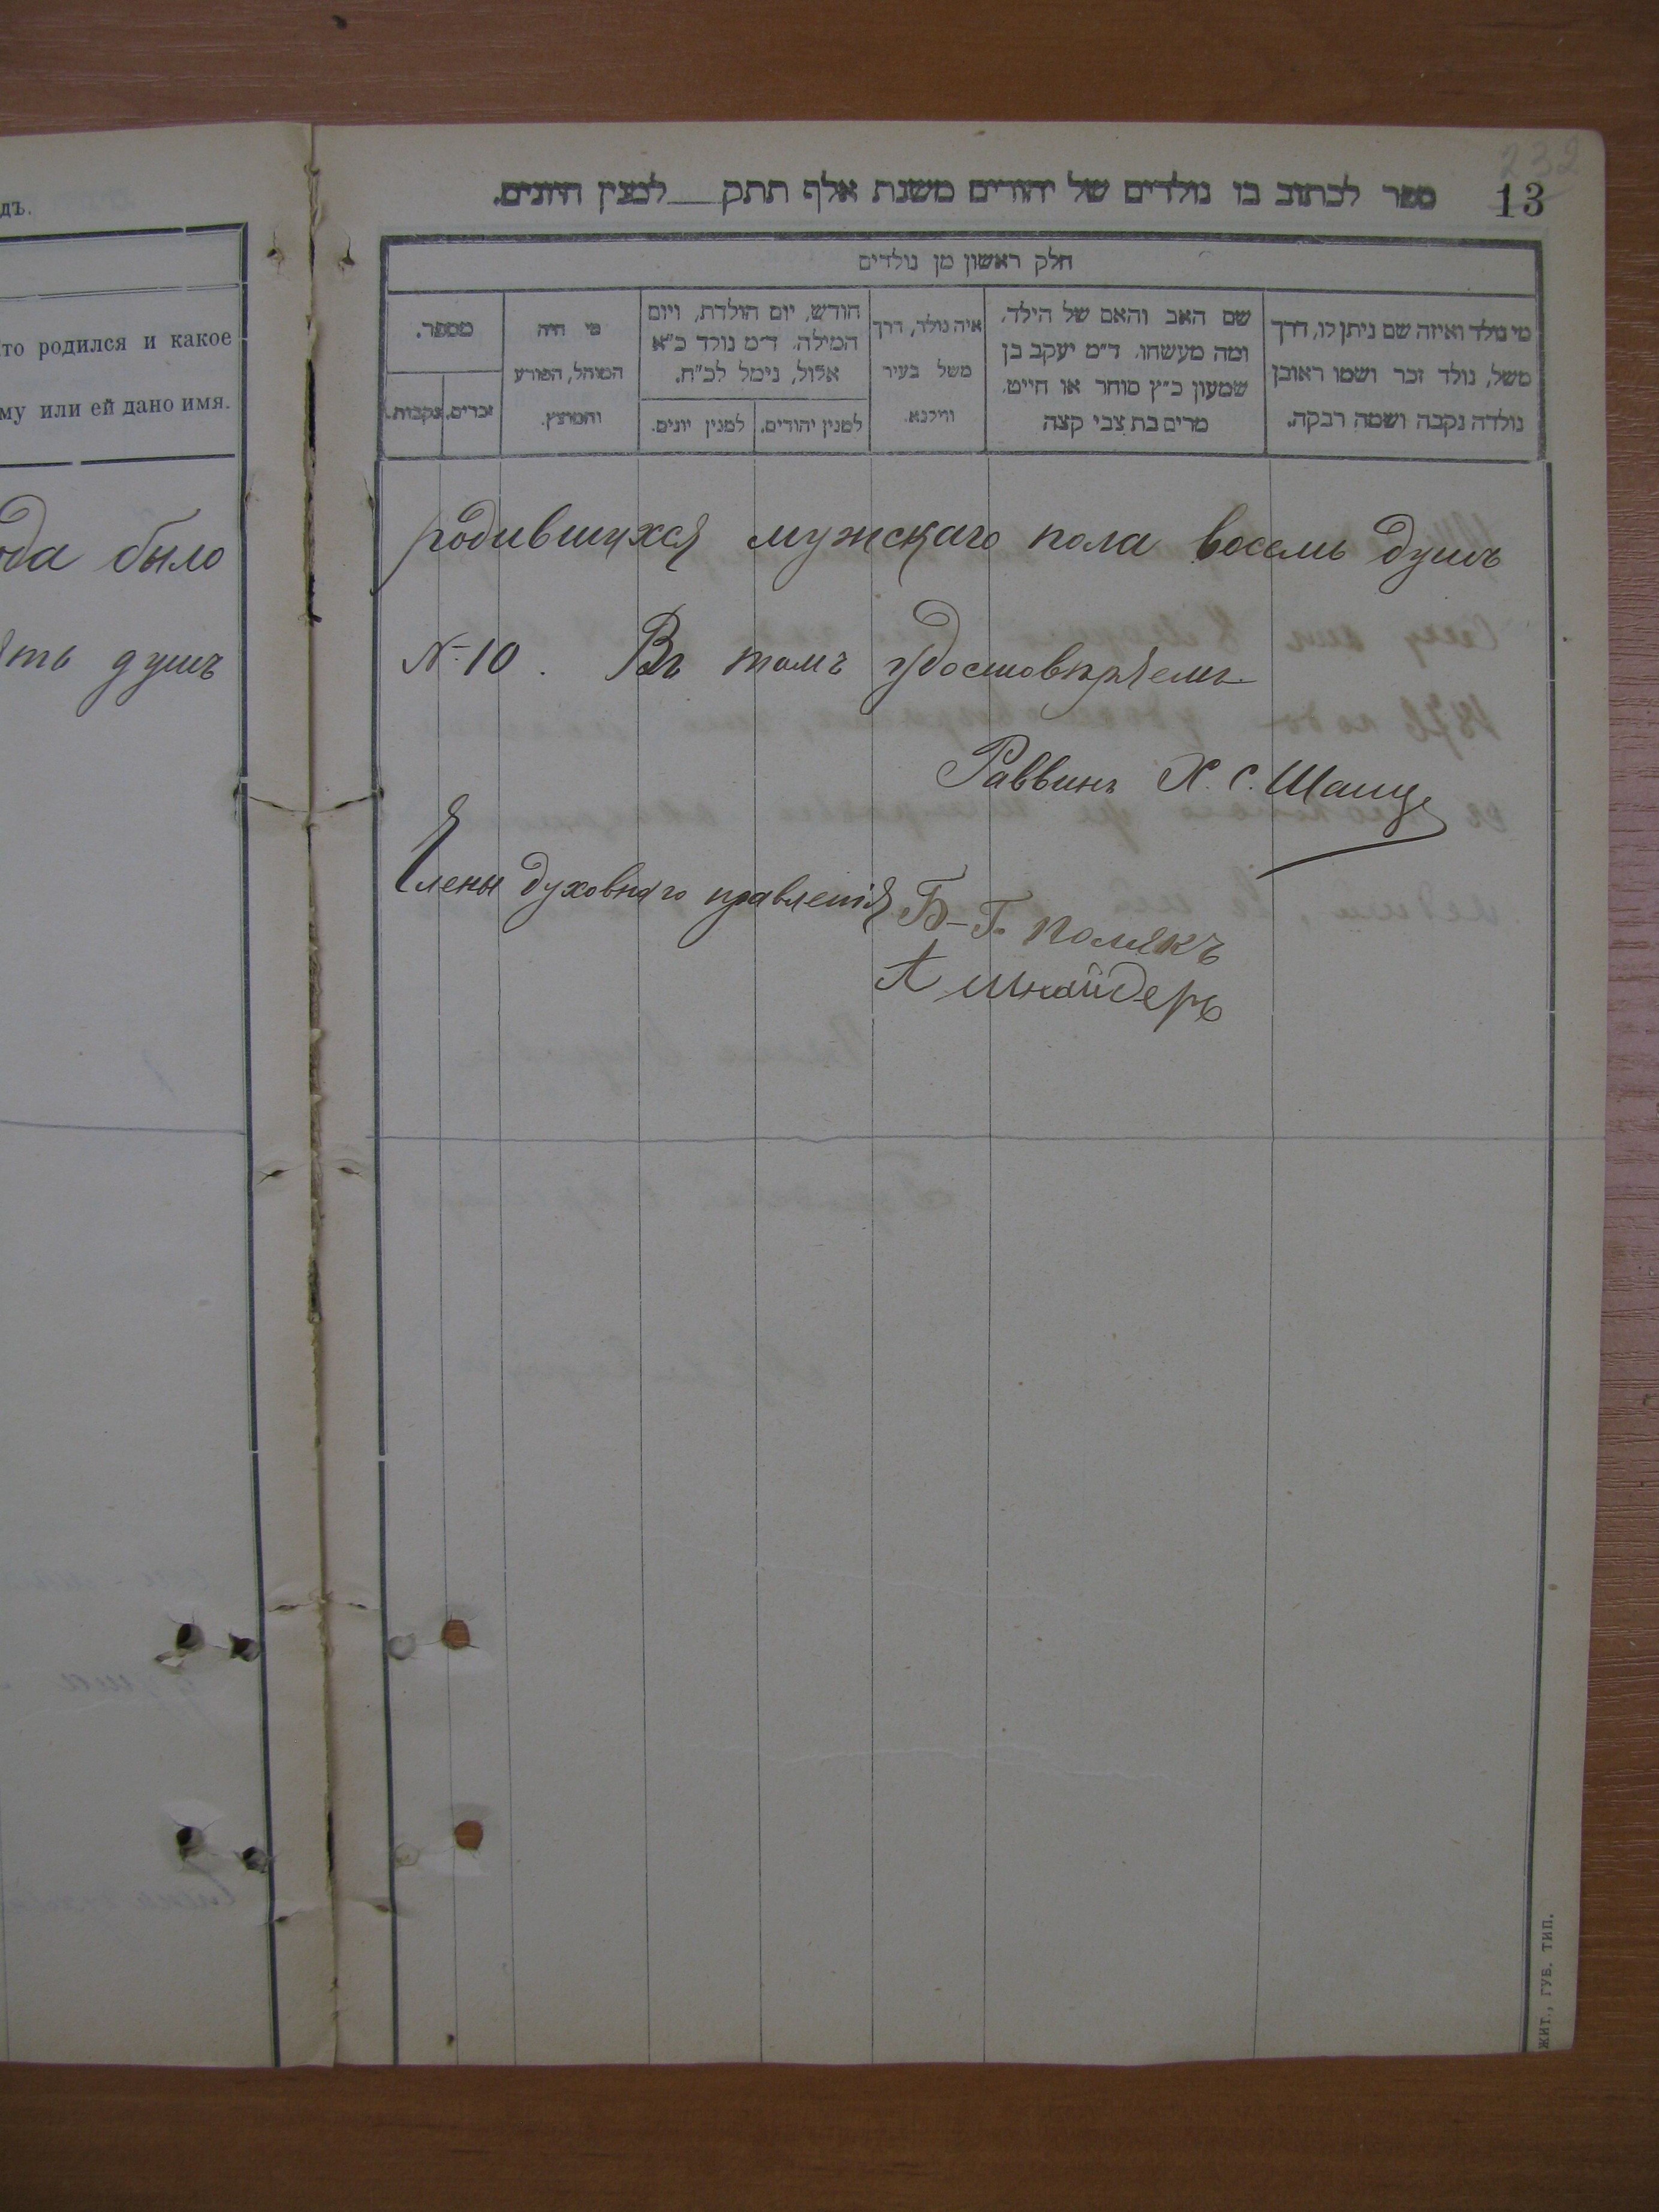 232
13
ספר לכתוב בו נולדים של יהודים משנת אלף תתק למנין היונים.
חלק ראשון מן נולדים
מי נולד ואיזה שם ניתן לו, דרך
משל, נולד זכר ושמו ראובן
נולדה נקבה ושמה רבקה.
שם האב והאם של הילד,
ומה מעשהו. ד״מ יעקב בן
שמעון כ״ץ סוחר או חייט.
מרים בת צבי קצה
איה נולד, דרך
משל בעיר
ווילנא.
חודש, יום הולדת, ויום
המילה. ד״מ נולד כ״א
אלול, נימל לכ״ח.
למנין יהודים.
למנין יונים.
מי היה
המוהל, הפורע
והמוצץ.
מספר.
זכרים.
נקבות.
дъ.
то родился и какое
му или ей дано имя.
ода было
ять душъ
родившихся мужскаго пола восемь душъ
№ 10. Въ томъ удостовѣряемъ
Раввинъ Х. С.
Члены духовнаго правленія Б-Г. Полякъ
А Шнайдеръ
ЖИТ., ГУБ. ТИП.